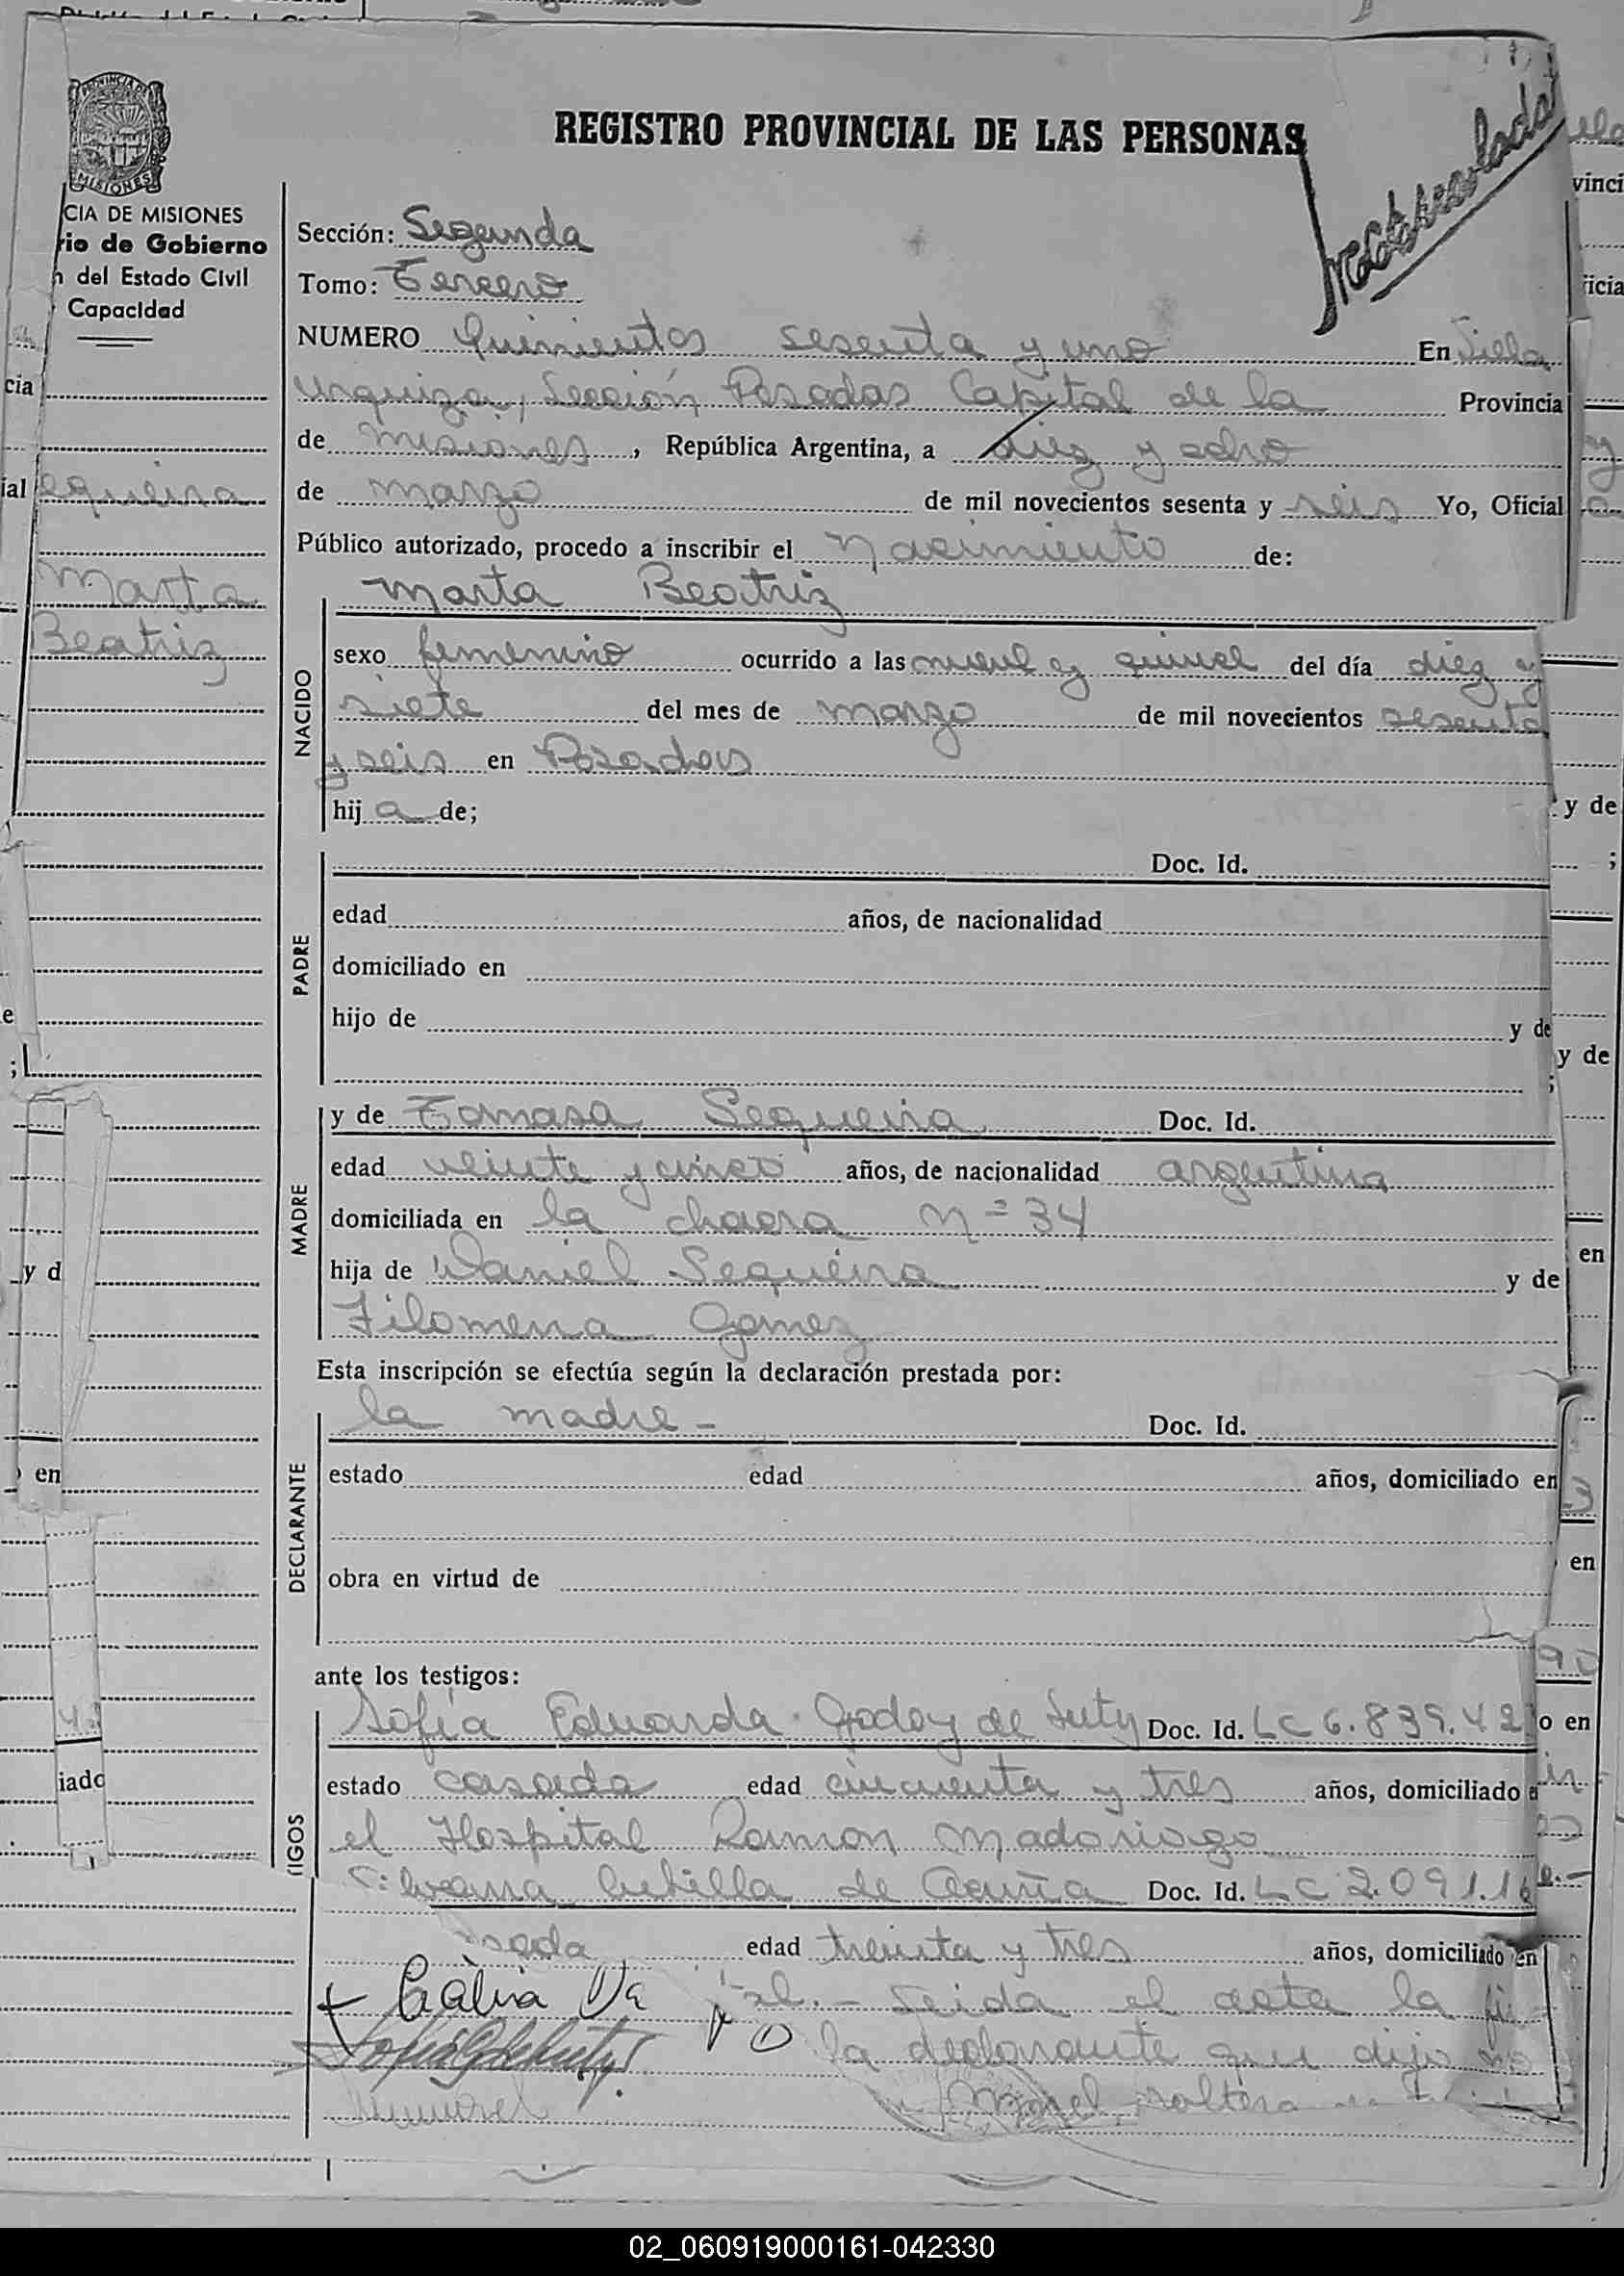 REGISTRO PROVINCIAL DE LAS PERSONAS
MISIONES
CIA DE MISIONES
rio de Gobierno
n del Estado Civil
Capacidad
equeira
Marta
Beatriz
Sección: Segunda
Tomo: Tercero
NUMERO Quinientos sesenta y uno En Villa
Urquiza, Sección Posadas Capital de la Provincia
de Misiones, República Argentina, a diez y ocho
de marzo de mil novecientos sesenta y seis Yo, Oficial
Público autorizado, procedo a inscribir el Nacimiento de:
Marta Beatriz
NACIDO
sexo femenino ocurrido a las nueve y quince del día diez y
siete del mes de marzo de mil novecientos sesenta
y seis en Posadas
hij a de;
PADRE
Doc. Id.
edad años, de nacionalidad
domiciliado en
hijo de y de
;
MADRE
y de Tomasa Sequeira Doc. Id.
edad veinte y cinco años, de nacionalidad argentina
domiciliada en la chacra Nº 34
hija de Daniel Sequeira y de
Filomena Gomez
Esta inscripción se efectúa según la declaración prestada por:
DECLARANTE
la madre - Doc. Id.
estado edad años, domiciliado en
obra en virtud de
ante los testigos:
TIGOS
Sofía Eduarda Godoy de Doc. Id. LC 6.839.42
estado casada edad cincuenta y tres años, domiciliado e
el Hospital Ramon Madariaga
de Acuña Doc. Id. LC 2.091.16
sada edad treinta y tres años, domiciliado en
Leida el acta la
la declarante que dijo no
02_060919000161-042330